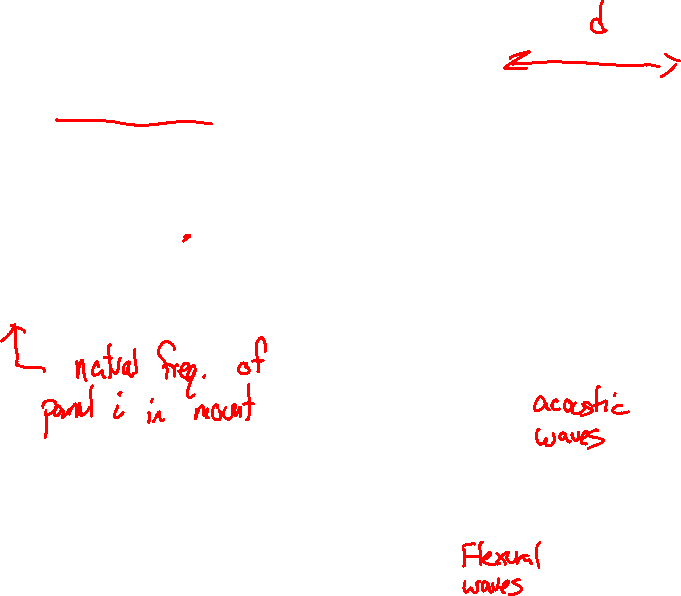 d
natural freq. of
panel i in mount
acoustic
waves
Flexural
waves